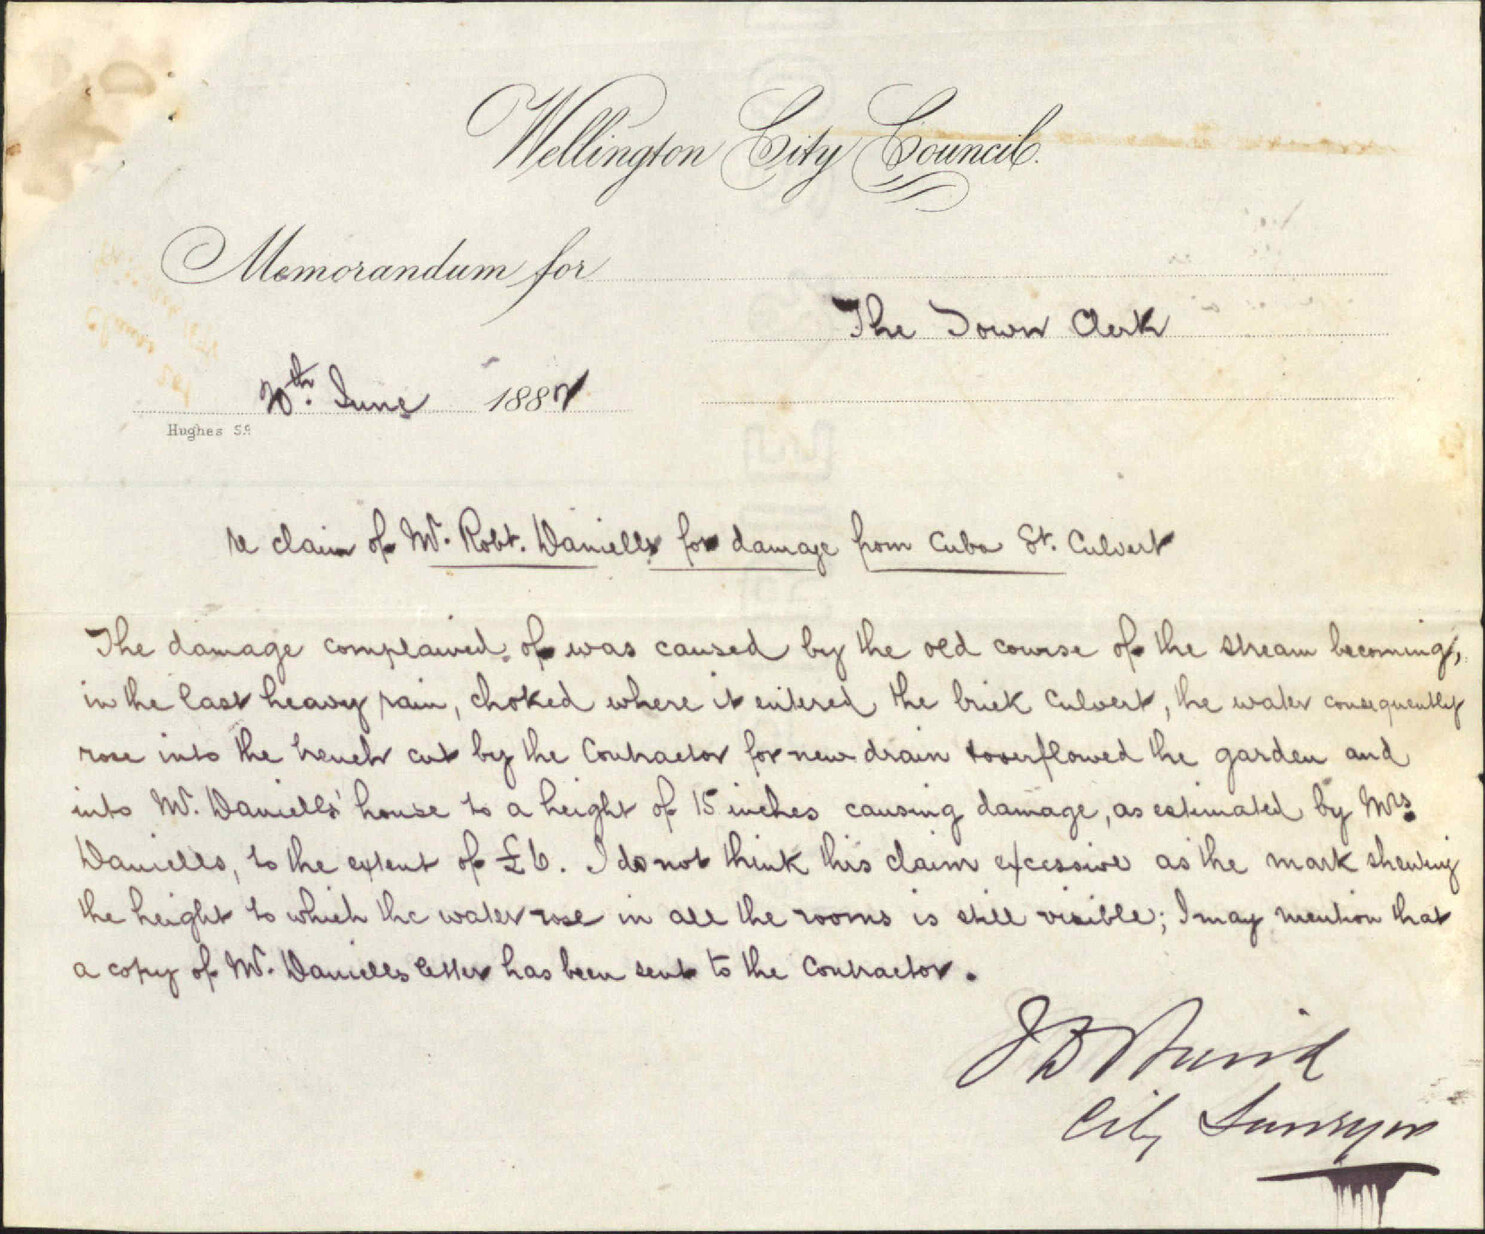 Wellington City Council.
Memorandum for
The Town Clerk
20th. June 188
Hughes Sc.
re claim of Mr. Robt. Daniells for damage from Cuba St. Culvert
The damage complained of was caused by the old course of the stream becoming,
in the last heavy rain, choked where it entered the brick culvert, the water consequently
rose into the trench cut by the Contractor for new drain & overflowed the garden and
into Mr. Daniells' house to a height of 15 inches causing damage, as estimated by Mrs.
Daniells, to the extent of £6. I do not think this claim excessive as the mark shewing
the height to which the water rose in all the rooms is still visible; I may mention that
a copy of Mr. Daniells letter has been sent to the Contractor.
J D Baird
City Surveyor